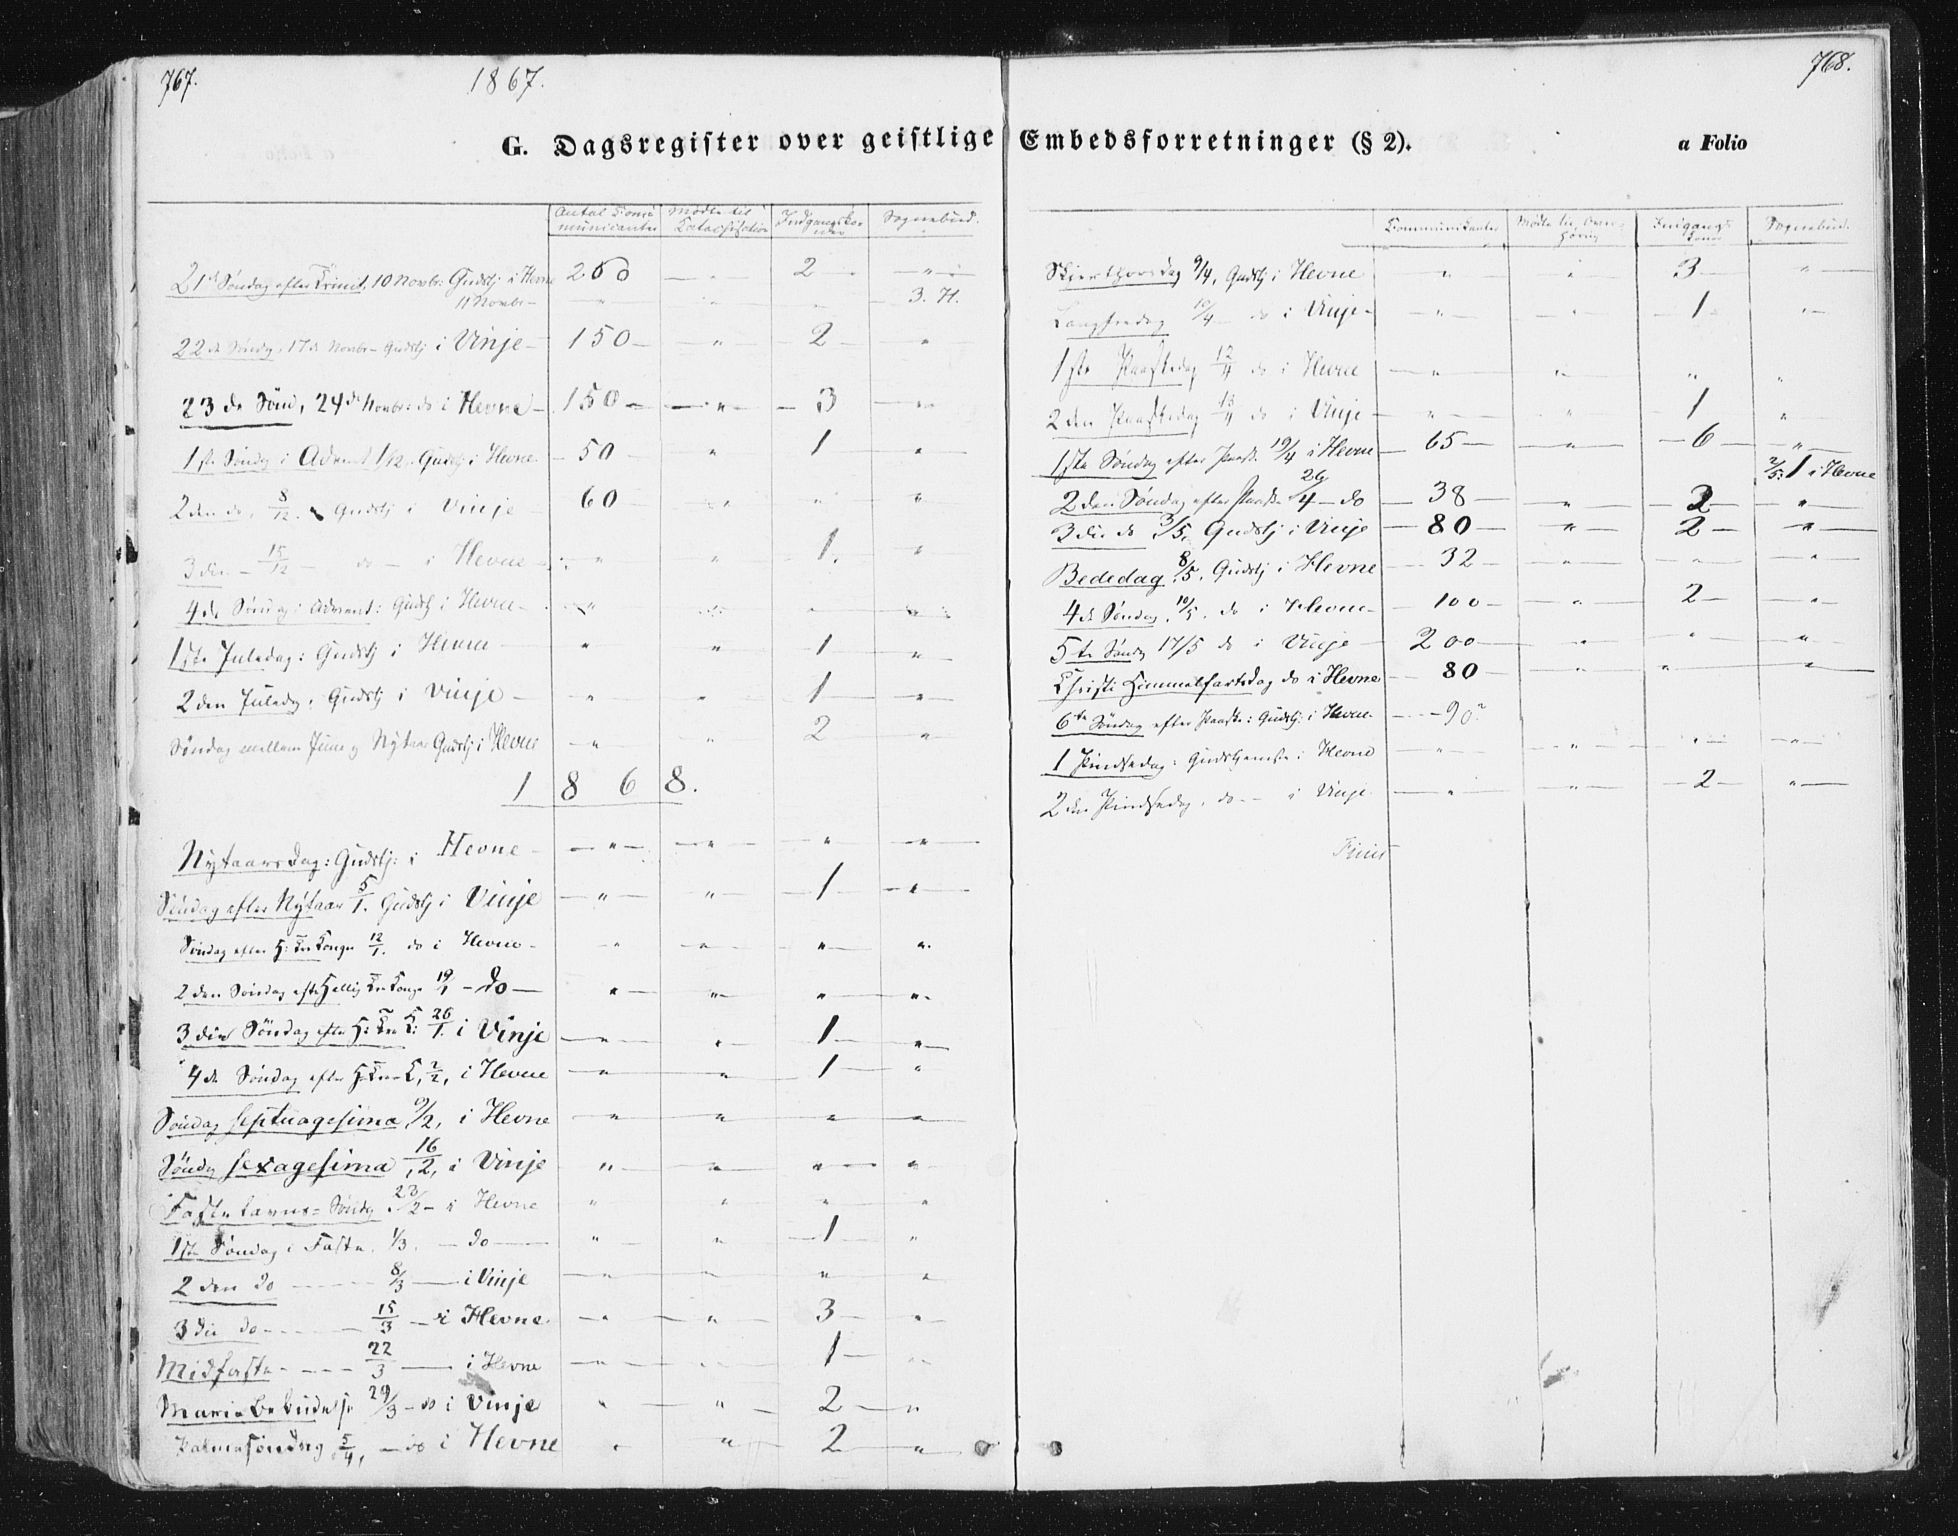 767.
1867.
G. Dagsregister over geistlige
Antal Com- Mødte til Indgangskoner Sognebud.
municanter Catachisation
21de Søndag efter Trinit. 10 Novbr: Gudstj i Hevne 200 — " — 2 — "
11 Novbr — " " — 3. H.
22de Søndag, 17de Novbr — Gudstj i Vinje — 150 — " — 2 — "
23de Sønd, 24de Novbr: do i Hevne — 150 — " — 3 — "
1ste Søndag i Advent 1/12. Gudstj i Hevne — 50 " 1 "
2den do, 8/12. Gudstj i Vinje — 60 — " " "
3die — 15/12 — do — i Hevne — " " 1. "
4de Søndag i Advent: Gudstj i Hevne — " " " "
1ste Juledag: Gudstj i Hevne " " 1 "
2den Juledag, Gudstj i Vinje — " " 1 "
Søndag mellem Juul og Nytaar Gudstj i Hevne — " " 2 "
1868.
Nytaarsdag: Gudstj: i Hevne — " — " — " "
Søndag efter Nytaar 5/1. Gudstj i Vinje — " — " — 1 — "
Søndag efter H: Tre Konger 12/1. do i Hevne — " " " "
2den Søndag efter Hellig Tre Konge 19/1 — do — " " " "
3die Søndag efter H: Tre K: 26/1. i Vinje — " " 1 — "
4de Søndag efter H. Tre K, 2/2, i Hevne " " 1 "
Søndag septuagesima 9/2, i Hevne " " " "
Søndag sexagesima 16/2, i Vinje " " " "
Fastelavns= Søndag 23/2 — i Hevne " " " "
1ste Søndag i Faste. 1/3. — do — " " 1 "
2den do — 8/3 — i Vinje " " " "
3die do — 15/3 — i Hevne " " 3 — "
Midfaste — 22/3 — i Hevne — " " 1 — "
Mariæ Bebudelse 29/3 — do i Vinje " " 2 — "
Palmesøndag 5/4, — do i Hevne " " 2 — "
768.
Embedsforretninger (§ 2).
a Folio
Communikanter Mødte til Over- Indgangs Sognebud.
høring Koner
Skjertorsdag 9/4, Gudstj i Hevne " " 3 — "
Langfredag 10/4 — do i Vinje — " " 1 "
1ste Paaskedag 12/4 do i Hevne — " " " "
2den Paaskedag 13/4 do i Vinje — " " 1 "
1ste Søndag efter Paask. 19/4 i Hevne — 65 — " — 6 — "
2/5: 1 i Hevne
2den Søndag efter Paaske 26/4 — do — 38 — " — 2 — "
3die do 3/5, Gudstj i Vinje — 80 — " — 2 — "
Bededag 8/5, Gudstj i Hevne — 32 — " " "
4de Søndag, 10/5. do i Hevne — 100 — " 2 — "
5te Søndag 17/5 do i Vinje — 200 — " " "
Christi Himmelfartsdag do i Hevne — 80 — " " "
6te Søndag efter Paaske: Gudstj: i Hevne — 90?
1 Pindsedag: Gudstjeneste i Hevne — " " " "
2den Pindsedag, do — i Vinje — " " 2 — "
Finis